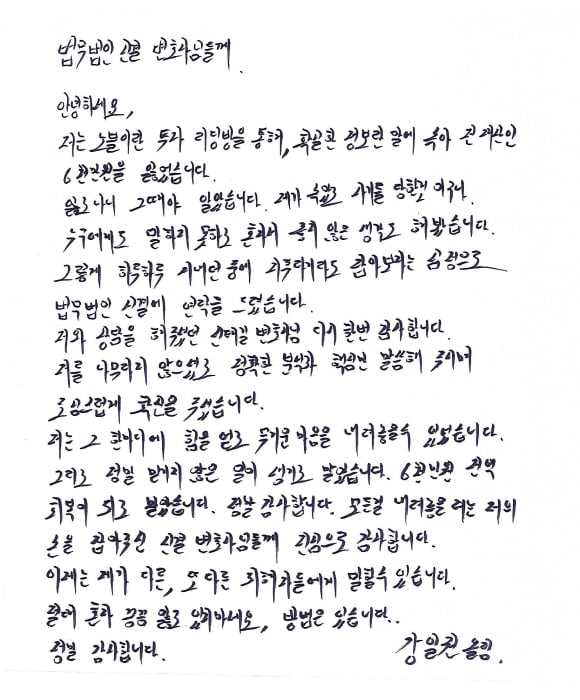 법무법인 신결 변호사님들께
안녕하세요,
저는 노블이란 투자 리딩방을 통해, 확실한 정보란 말에 속아 전 재산인
6천만원을 잃었습니다.
잃고나니 그때야 알았습니다. 제가 속았고 사기를 당한것 이구나.
누구에게도 말하지 못하고 혼자서 좋지 않은 생각도 해봤습니다.
그렇게 하루하루 지내던 중에 지푸라기라도 잡아보자는 심정으로
법무법인 신결에 연락을 드렸습니다.
저와 상담을 해주셨던 신태길 변호사님 다시 한번 감사합니다.
저를 나무라지 않으셨고 정확한 분석과 핵심만 말씀해 주시며
조심스럽게 확신을 주셨습니다.
저는 그 한마디에 힘을 얻고 무거운 마음을 내려놓을수 있었습니다.
그리고 정말 믿기지 않은 일이 생기고 말았습니다. 6천만원 전액
회복이 되고 말았습니다. 정말 감사합니다. 모든걸 내려놓을 려는 저의
손을 잡아주신 신결 변호사님들께 진심으로 감사합니다.
이제는 제가 다른, 또 다른 피해자들에게 말할수 있습니다.
절대 혼자 끙끙 앓고 있지마세요, 방법은 있습니다..
정말 감사합니다.
강일권 올림.